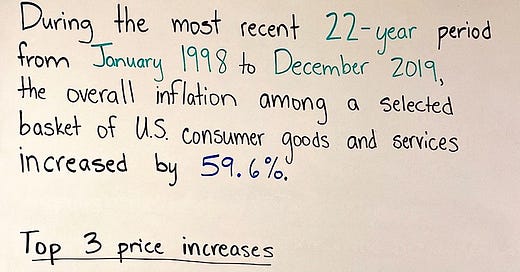 During the most recent 22-year period
from January 1998 to December 2019,
the overall inflation among a selected
basket of U.S. consumer goods and services
increased by 59.6%.
Top 3 price increases